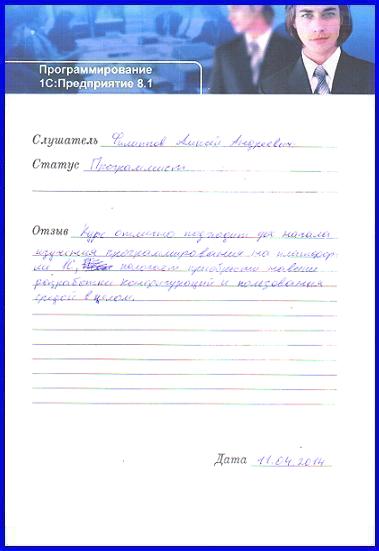 Программирование
1С:Предприятие 8.1
Слушатель Филиппов Алексей Андреевич
Статус Программист
Отзыв Курс отлично подходит для начала
изучения программирования на платфор-
ме 1С, помогает приобрести навыки
разработки конфигураций и пользования
средой в целом.
Дата 11.04.2014